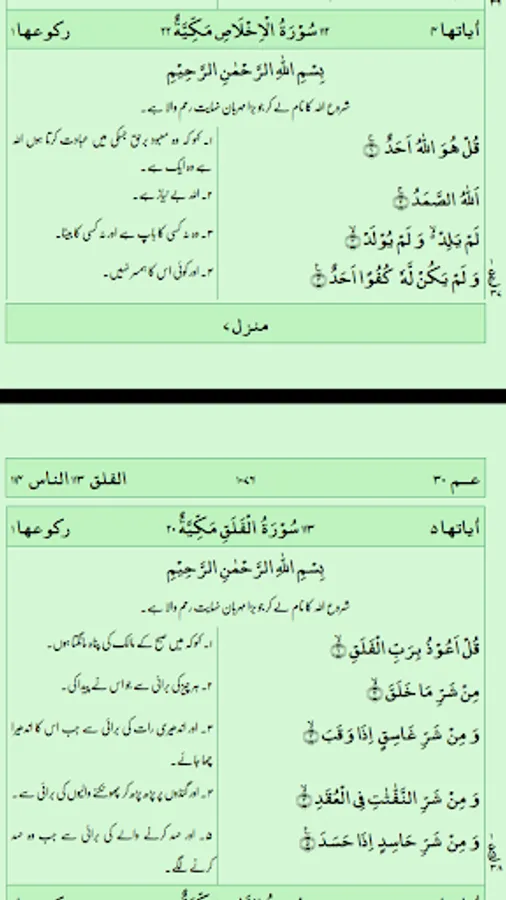 اٰیاتها ۴ ۱۱۲ سُوْرَةُ الْاِخْلَاصِ مَكِّیَّةٌ ۲۲ رکوعها ۱
بِسْمِ اللهِ الرَّحْمٰنِ الرَّحِیْمِ
شروع اللہ کا نام لے کر جو بڑا مہربان نہایت رحم والا ہے۔
قُلْ هُوَ اللهُ اَحَدٌ ۚ﴿۱﴾
۱۔ کہو کہ وہ معبود برحق جسکی میں عبادت کرتا ہوں اللہ
ہے وہ ایک ہے۔
اَللهُ الصَّمَدُ ۚ﴿۲﴾
۲۔ اللہ بے نیاز ہے۔
لَمْ یَلِدْ ۙ۬ وَ لَمْ یُوْلَدْ ۙ﴿۳﴾
۳۔ وہ نہ کسی کا باپ ہے اور نہ کسی کا بیٹا۔
وَ لَمْ یَكُنْ لَّهٗ كُفُوًا اَحَدٌ ﴿۴﴾
۴۔ اور کوئی اس کا ہمسر نہیں۔
ع
۳۷
منزل ۷
عـم ۳۰ ۱۰۷۶ الفلق ۱۱۳ الناس ۱۱۴
اٰیاتها ۵ ۱۱۳ سُوْرَةُ الْفَلَقِ مَكِّیَّةٌ ۲۰ رکوعها ۱
بِسْمِ اللهِ الرَّحْمٰنِ الرَّحِیْمِ
شروع اللہ کا نام لے کر جو بڑا مہربان نہایت رحم والا ہے۔
قُلْ اَعُوْذُ بِرَبِّ الْفَلَقِ ۙ﴿۱﴾
۱۔ کہو کہ میں صبح کے مالک کی پناہ مانگتا ہوں۔
مِنْ شَرِّ مَا خَلَقَ ۙ﴿۲﴾
۲۔ ہر چیز کی برائی سے جو اس نے پیدا کی۔
وَ مِنْ شَرِّ غَاسِقٍ اِذَا وَقَبَ ۙ﴿۳﴾
۳۔ اور اندھیری رات کی برائی سے جب اس کا اندھیرا
چھا جائے۔
وَ مِنْ شَرِّ النَّفّٰثٰتِ فِی الْعُقَدِ ۙ﴿۴﴾
۴۔ اور گنڈوں پر پڑھ پڑھ کر پھونکنے والیوں کی برائی سے۔
وَ مِنْ شَرِّ حَاسِدٍ اِذَا حَسَدَ ﴿۵﴾
۵۔ اور حسد کرنے والے کی برائی سے جب وہ حسد
کرنے لگے۔
ع
۳۸